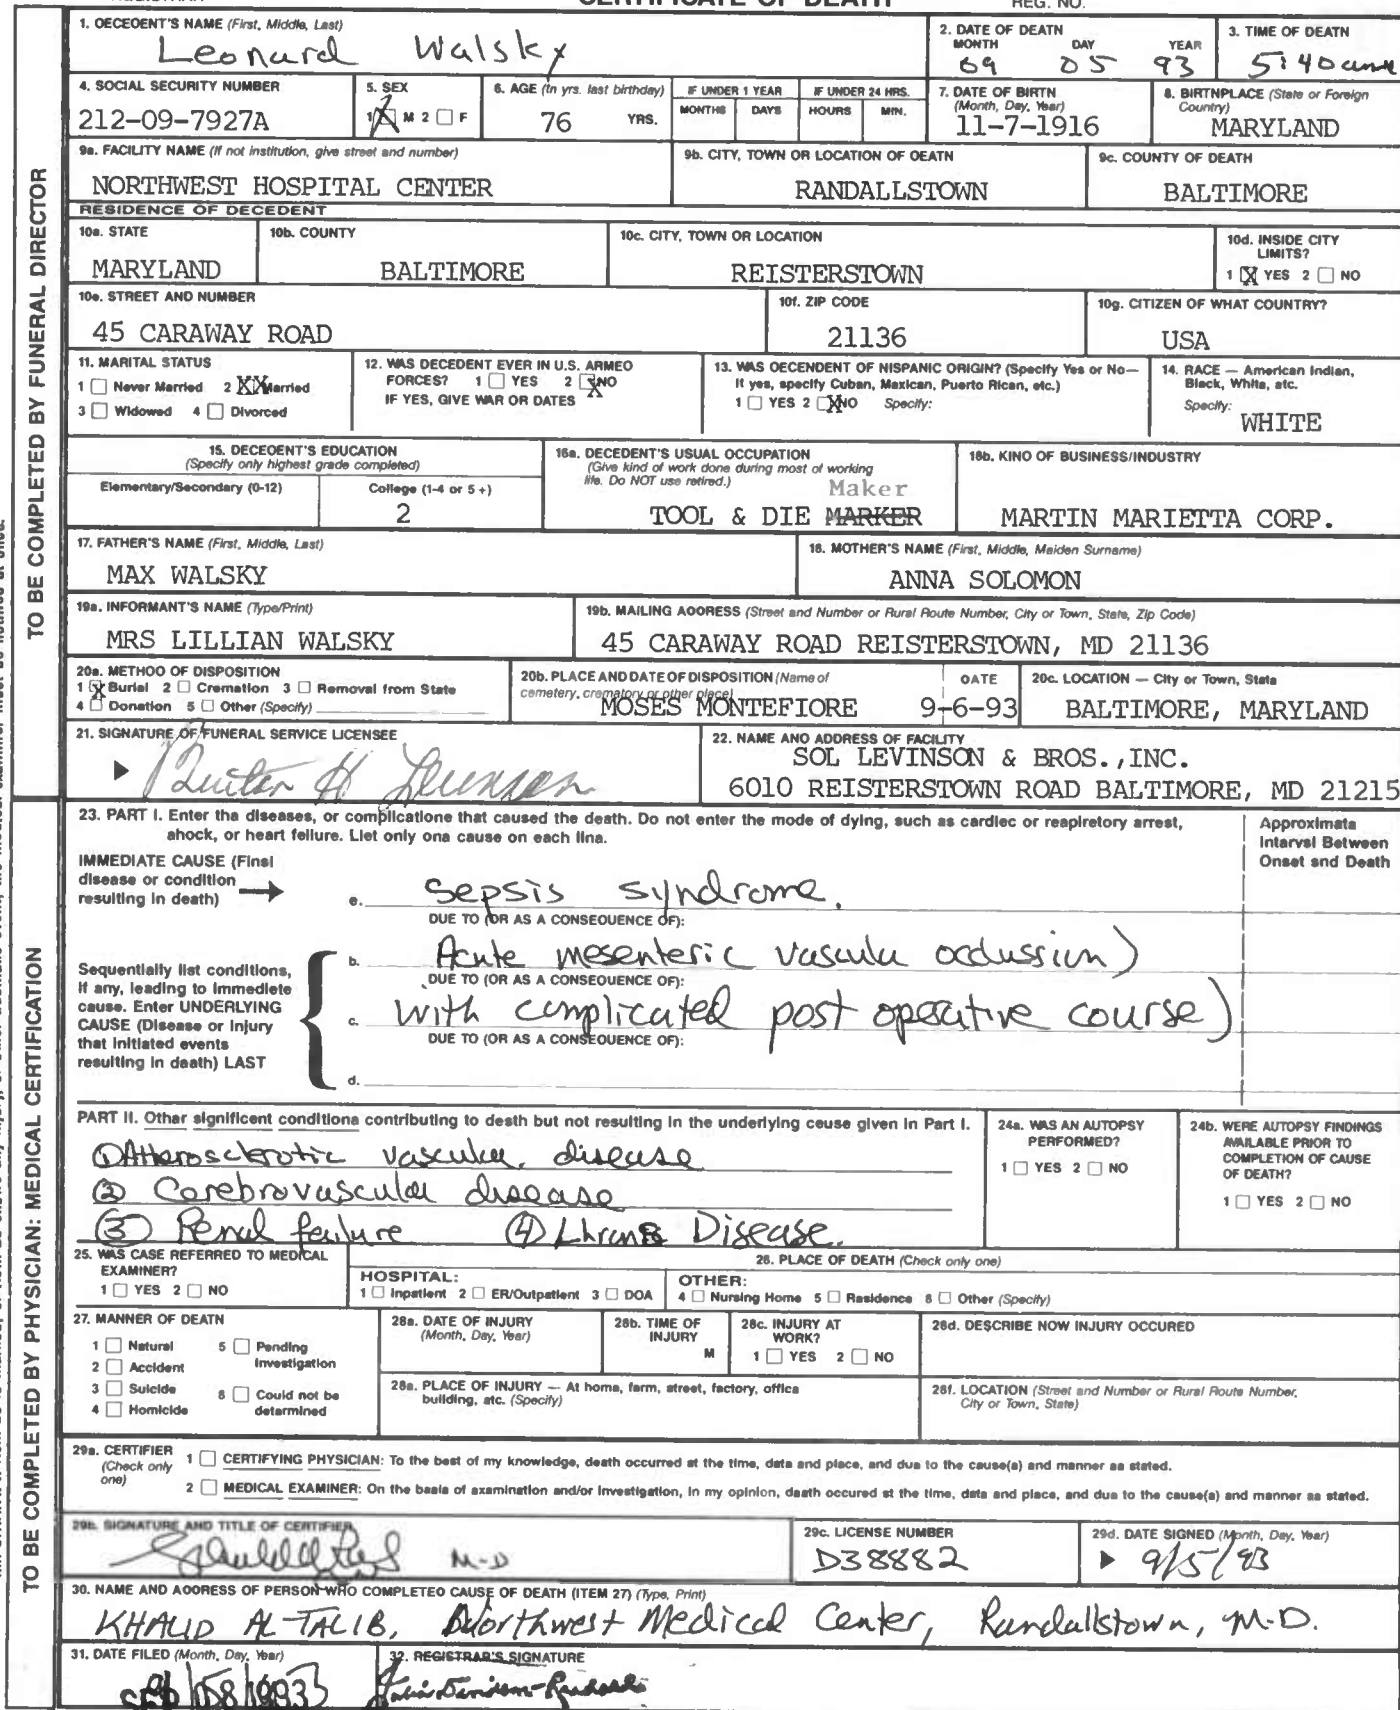 CERTIFICATE OF DEATH
REG. NO.
1. DECEDENT'S NAME (First, Middle, Last)
Leonard Walsky
2. DATE OF DEATH
MONTH DAY YEAR
09 05 93
3. TIME OF DEATH
5:40 am
4. SOCIAL SECURITY NUMBER
212-09-7927A
5. SEX
1 X M 2 ☐ F
6. AGE (In yrs. last birthday)
76 YRS.
IF UNDER 1 YEAR
MONTHS DAYS
IF UNDER 24 HRS.
HOURS MIN.
7. DATE OF BIRTH
(Month, Day, Year)
11-7-1916
8. BIRTHPLACE (State or Foreign
Country)
MARYLAND
9a. FACILITY NAME (If not institution, give street and number)
NORTHWEST HOSPITAL CENTER
9b. CITY, TOWN OR LOCATION OF DEATH
RANDALLSTOWN
9c. COUNTY OF DEATH
BALTIMORE
RESIDENCE OF DECEDENT
10a. STATE
MARYLAND
10b. COUNTY
BALTIMORE
10c. CITY, TOWN OR LOCATION
REISTERSTOWN
10d. INSIDE CITY
LIMITS?
1 X YES 2 ☐ NO
10e. STREET AND NUMBER
45 CARAWAY ROAD
10f. ZIP CODE
21136
10g. CITIZEN OF WHAT COUNTRY?
USA
11. MARITAL STATUS
1 ☐ Never Married 2 XX Married
3 ☐ Widowed 4 ☐ Divorced
12. WAS DECEDENT EVER IN U.S. ARMED
FORCES? 1 ☐ YES 2 X NO
IF YES, GIVE WAR OR DATES
13. WAS DECENDENT OF HISPANIC ORIGIN? (Specify Yes or No—
If yes, specify Cuban, Mexican, Puerto Rican, etc.)
1 ☐ YES 2 X NO Specify:
14. RACE — American Indian,
Black, White, etc.
Specify:
WHITE
15. DECEDENT'S EDUCATION
(Specify only highest grade completed)
Elementary/Secondary (0-12)
College (1-4 or 5+)
2
16a. DECEDENT'S USUAL OCCUPATION
(Give kind of work done during most of working
life. Do NOT use retired.)
Maker
TOOL & DIE MARKER
16b. KIND OF BUSINESS/INDUSTRY
MARTIN MARIETTA CORP.
17. FATHER'S NAME (First, Middle, Last)
MAX WALSKY
18. MOTHER'S NAME (First, Middle, Maiden Surname)
ANNA SOLOMON
19a. INFORMANT'S NAME (Type/Print)
MRS LILLIAN WALSKY
19b. MAILING ADDRESS (Street and Number or Rural Route Number, City or Town, State, Zip Code)
45 CARAWAY ROAD REISTERSTOWN, MD 21136
20a. METHOD OF DISPOSITION
1 X Burial 2 ☐ Cremation 3 ☐ Removal from State
4 ☐ Donation 5 ☐ Other (Specify)
20b. PLACE AND DATE OF DISPOSITION (Name of
cemetery, crematory or other place)
DATE
MOSES MONTEFIORE 9-6-93
20c. LOCATION — City or Town, State
BALTIMORE, MARYLAND
21. SIGNATURE OF FUNERAL SERVICE LICENSEE
H Levinson
22. NAME AND ADDRESS OF FACILITY
SOL LEVINSON & BROS.,INC.
6010 REISTERSTOWN ROAD BALTIMORE, MD 21215
TO BE COMPLETED BY FUNERAL DIRECTOR
23. PART I. Enter the diseases, or complications that caused the death. Do not enter the mode of dying, such as cardiac or respiratory arrest,
shock, or heart failure. List only one cause on each line.
Approximate
Interval Between
Onset and Death
IMMEDIATE CAUSE (Final
disease or condition
resulting in death)
a. Sepsis syndrome.
DUE TO (OR AS A CONSEQUENCE OF):
b. Acute mesenteric vascular occlussion)
DUE TO (OR AS A CONSEQUENCE OF):
c. with complicated post operative course)
DUE TO (OR AS A CONSEQUENCE OF):
d.
Sequentially list conditions,
if any, leading to immediate
cause. Enter UNDERLYING
CAUSE (Disease or injury
that initiated events
resulting in death) LAST
PART II. Other significant conditions contributing to death but not resulting in the underlying cause given in Part I.
① Atherosclerotic vascular disease
② Cerebrovascular disease
③ Renal failure ④ Disease.
24a. WAS AN AUTOPSY
PERFORMED?
1 ☐ YES 2 ☐ NO
24b. WERE AUTOPSY FINDINGS
AVAILABLE PRIOR TO
COMPLETION OF CAUSE
OF DEATH?
1 ☐ YES 2 ☐ NO
25. WAS CASE REFERRED TO MEDICAL
EXAMINER?
1 ☐ YES 2 ☐ NO
26. PLACE OF DEATH (Check only one)
HOSPITAL:
1 ☐ Inpatient 2 ☐ ER/Outpatient 3 ☐ DOA
OTHER:
4 ☐ Nursing Home 5 ☐ Residence 6 ☐ Other (Specify)
27. MANNER OF DEATH
1 ☐ Natural 5 ☐ Pending
Investigation
2 ☐ Accident
3 ☐ Suicide 6 ☐ Could not be
determined
4 ☐ Homicide
28a. DATE OF INJURY
(Month, Day, Year)
28b. TIME OF
INJURY
M
28c. INJURY AT
WORK?
1 ☐ YES 2 ☐ NO
28d. DESCRIBE HOW INJURY OCCURED
28e. PLACE OF INJURY — At home, farm, street, factory, office
building, etc. (Specify)
28f. LOCATION (Street and Number or Rural Route Number,
City or Town, State)
29a. CERTIFIER
(Check only
one)
1 ☐ CERTIFYING PHYSICIAN: To the best of my knowledge, death occurred at the time, date and place, and due to the cause(s) and manner as stated.
2 ☐ MEDICAL EXAMINER: On the basis of examination and/or investigation, in my opinion, death occured at the time, date and place, and due to the cause(s) and manner as stated.
29b. SIGNATURE AND TITLE OF CERTIFIER
M-D
29c. LICENSE NUMBER
D38882
29d. DATE SIGNED (Month, Day, Year)
9/5/93
30. NAME AND ADDRESS OF PERSON WHO COMPLETED CAUSE OF DEATH (ITEM 27) (Type, Print)
KHALID AL-TALIB, Northwest Medical Center, Randallstown, M.D.
31. DATE FILED (Month, Day, Year)
32. REGISTRAR'S SIGNATURE
TO BE COMPLETED BY PHYSICIAN: MEDICAL CERTIFICATION